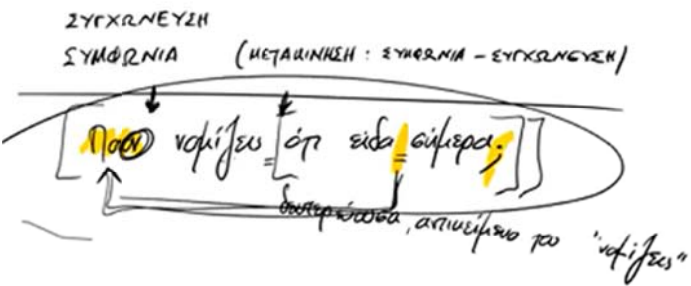 ΣΥΓΧΩΝΕΥΣΗ
ΣΥΜΦΩΝΙΑ (ΜΕΤΑΚΙΝΗΣΗ : ΣΥΜΦΩΝΙΑ - ΣΥΓΧΩΝΕΥΣΗ)
[Ποιον νομίζεις [ότι είδα σήμερα;]]
δευτερεύουσα, αντικείμενο του "νομίζεις"